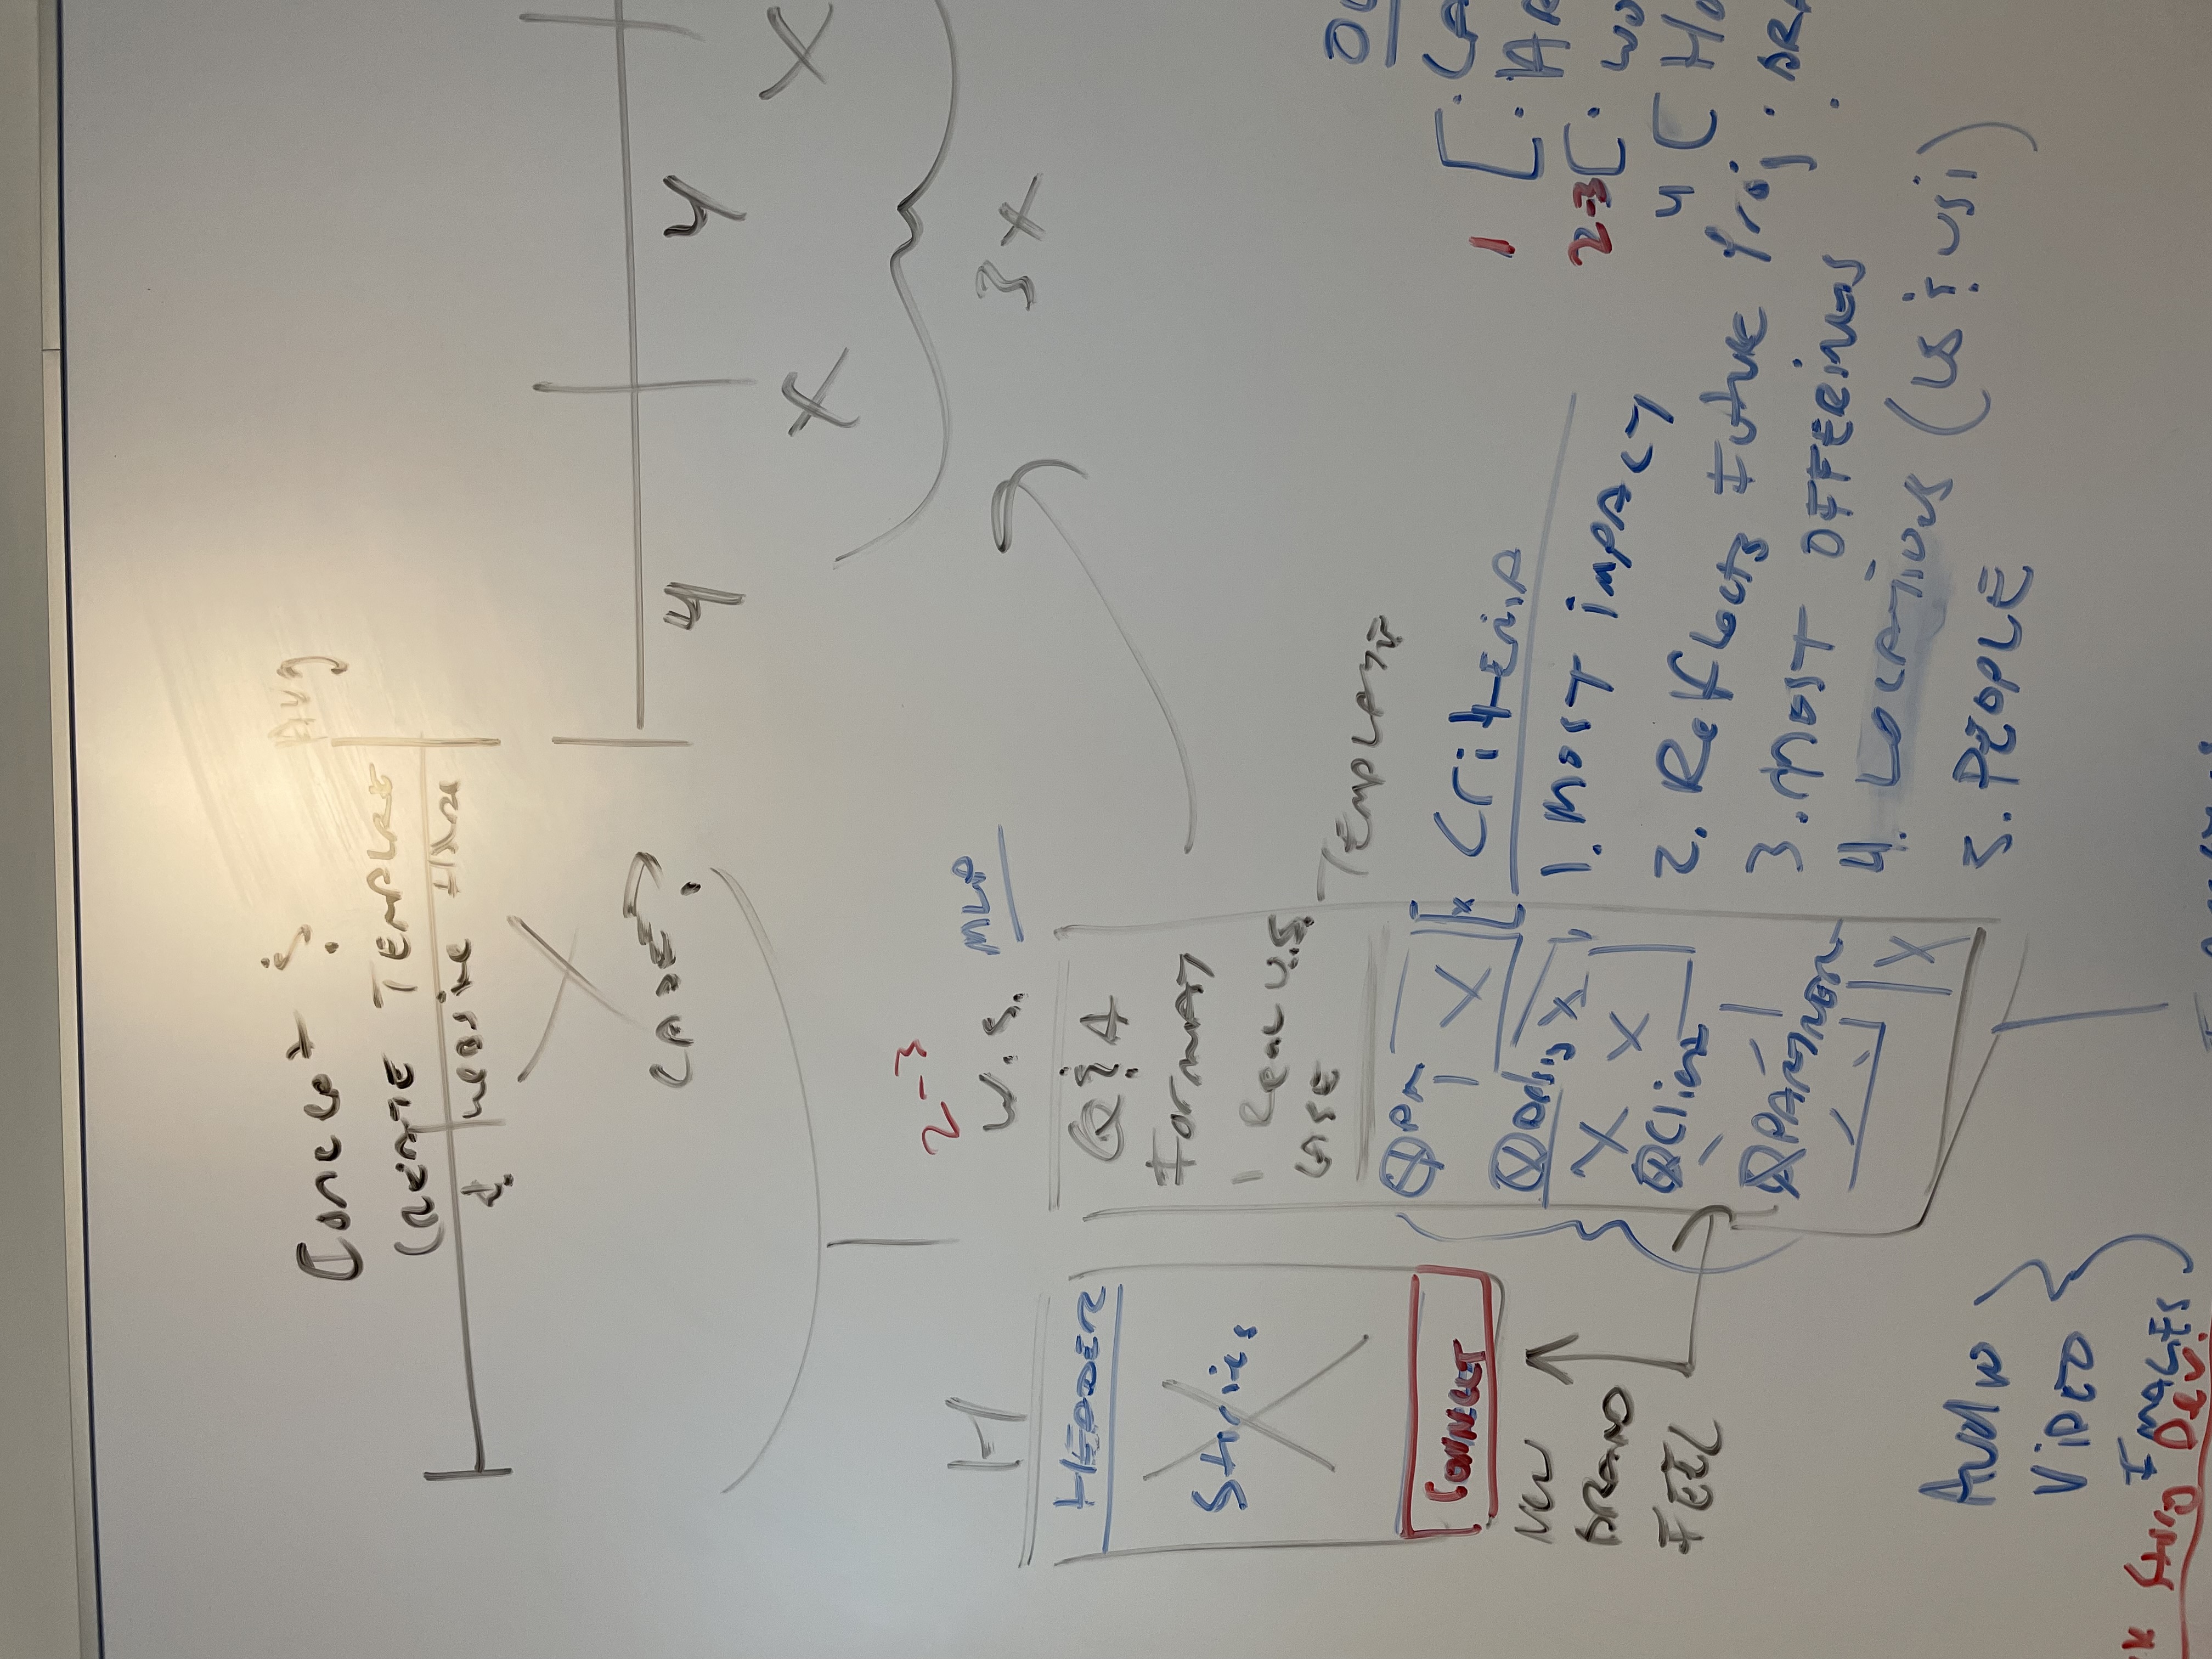 Concept &
CREATE TEMPLATE
& website
Aug
CASE?
4 4
X X
3x
H
HEADER
Stories
CONNECT
NEW
BRAND
FEEL
2-3
W.S. MLP
Q & A
Format
1 Real U.S.
CASE
TEMPLATE
Q PM
Q Design
Q Client
Q PARTNER
Criteria
1. Most impact
2. Reflects Future Proj
3. Most OFFERINGS
4. LOCATIONS (US & USI)
5. PEOPLE
1
2-3
4
Audio
Video
IMAGES
Story Dev.